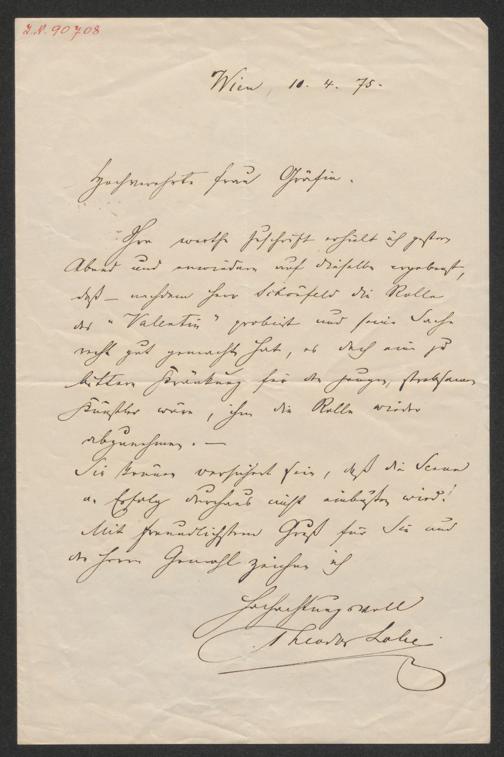 I.N. 90708
Wien, 10. 4. 75.
Hochverehrte Frau Gräfin.
Ihre werthe Zuschrift erhielt ich gestern
Abend und erwiedere auf dieselbe ergebenst,
daß – nachdem Herr Schönfeld die Rolle
des "Valentin" probirt und seine Sache
recht gut gemacht hat, es doch eine zu
bittere Kränkung für den jungen, strebsamen
Künstler wäre, ihm die Rolle wieder
abzunehmen. –
Sie können versichert sein, daß die Scene
an Erfolg durchaus nicht einbüßen wird!
Mit freundlichstem Gruß für Sie und
den Herrn Gemahl zeichne ich
Hochachtungsvoll
Theodor Lobe.